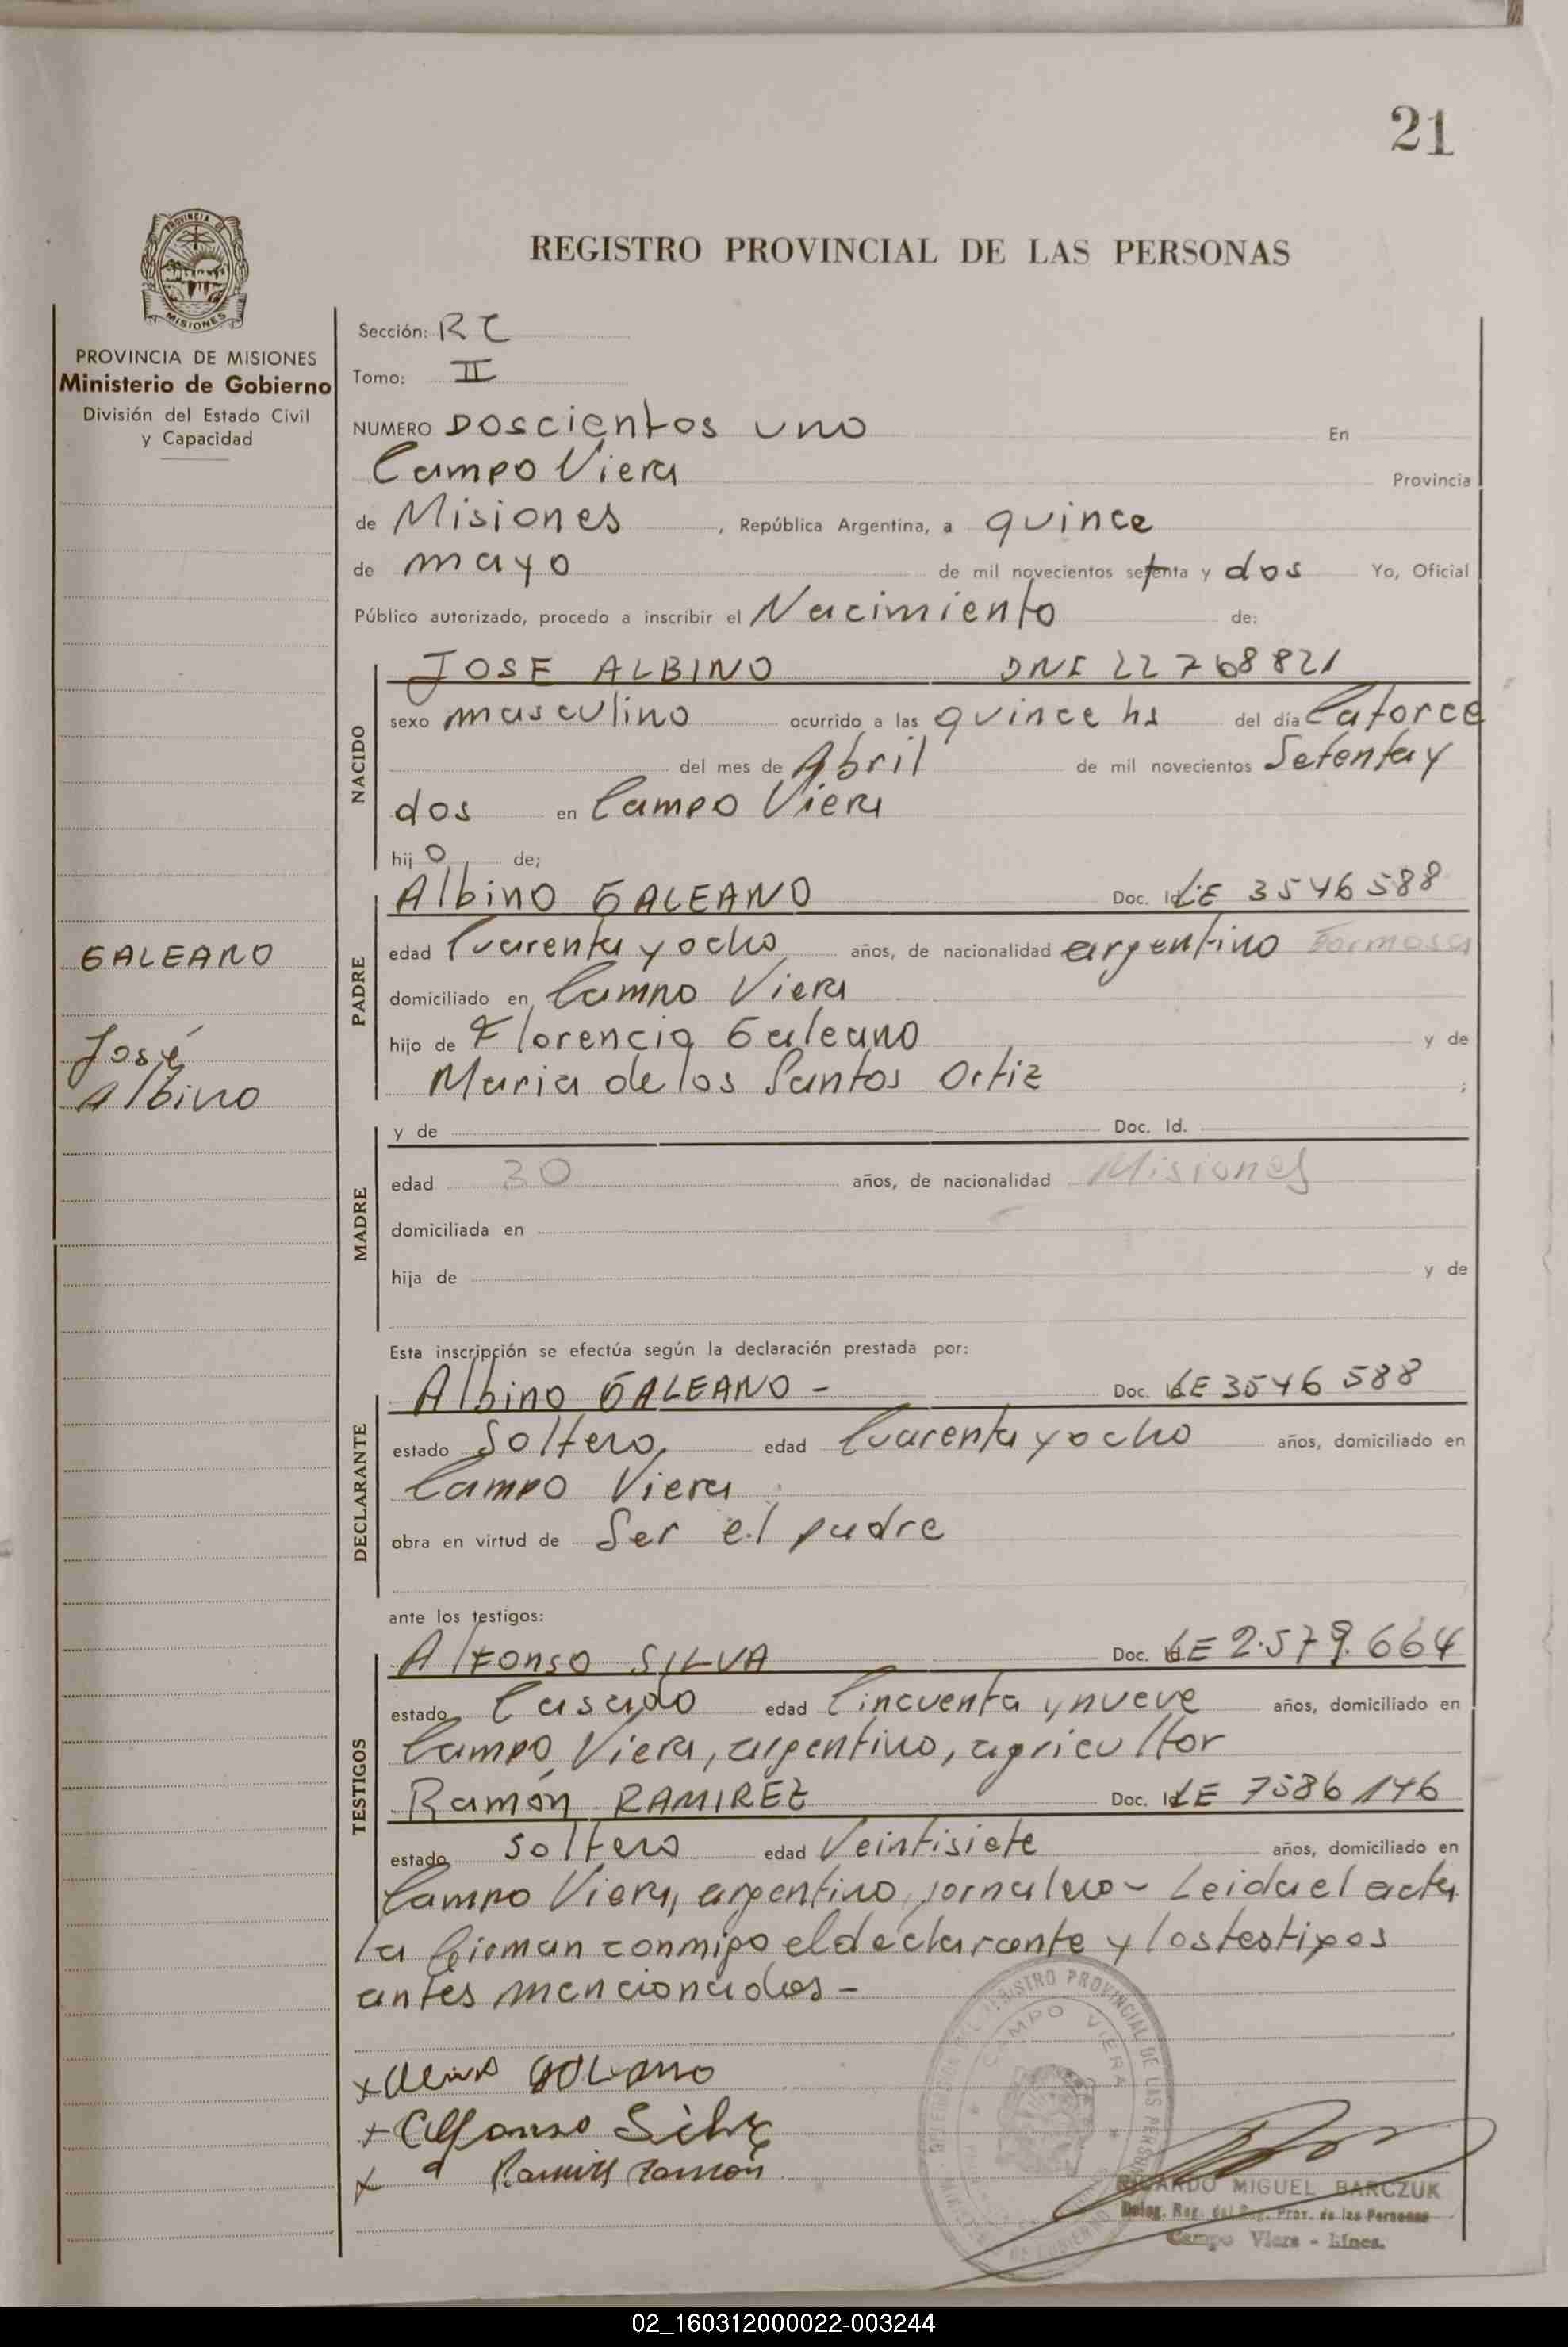 21
PROVINCIA DE MISIONES
Ministerio de Gobierno
División del Estado Civil
y Capacidad
GALEANO
José
Albino
REGISTRO PROVINCIAL DE LAS PERSONAS
Sección: RC
Tomo: II
NUMERO Doscientos uno En
Campo Viera Provincia
de Misiones, República Argentina, a quince
de mayo de mil novecientos setenta y dos Yo, Oficial
Público autorizado, procedo a inscribir el Nacimiento de:
NACIDO
JOSE ALBINO DNI 22 768821
sexo masculino ocurrido a las quince hs del día Catorce
del mes de Abril de mil novecientos Setenta y
dos en Campo Viera
hijo de;
PADRE
Albino GALEANO Doc. Id. LE 3546588
edad Cuarenta y ocho años, de nacionalidad argentino Formosa
domiciliado en Campo Viera
hijo de Florencio Galeano y de
Maria de los Santos Ortiz ;
MADRE
y de Doc. Id.
edad 30 años, de nacionalidad Misiones
domiciliada en
hija de y de
Esta inscripción se efectúa según la declaración prestada por:
DECLARANTE
Albino GALEANO - Doc. Id. LE 3546 588
estado Soltero, edad Cuarenta y ocho años, domiciliado en
Campo Viera
obra en virtud de Ser el padre
ante los testigos:
TESTIGOS
Alfonso SILVA Doc. Id. LE 2.579.664
estado Casado edad Cincuenta y nueve años, domiciliado en
Campo Viera, argentino, agricultor
Ramón RAMIREZ Doc. Id. LE 7586146
estado soltero edad Veintisiete años, domiciliado en
Campo Viera, argentino, jornalero - Leida el acta
la firman conmigo el declarante y los testigos
antes mencionados -
x GOLEANO
+ Alfonso Silva
x Ramirez Ramón
REGISTRO PROVINCIAL DE LAS PERSONAS
CAMPO VIERA
RICARDO MIGUEL BARCZUK
Deleg. Reg. del Reg. Prov. de las Personas
Campo Viera - Mnes.
02_160312000022-003244